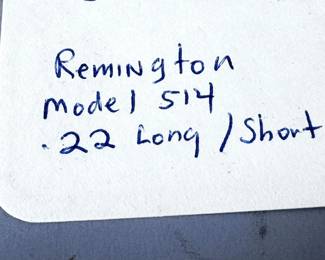 Remington
Model 514
.22 Long / Short